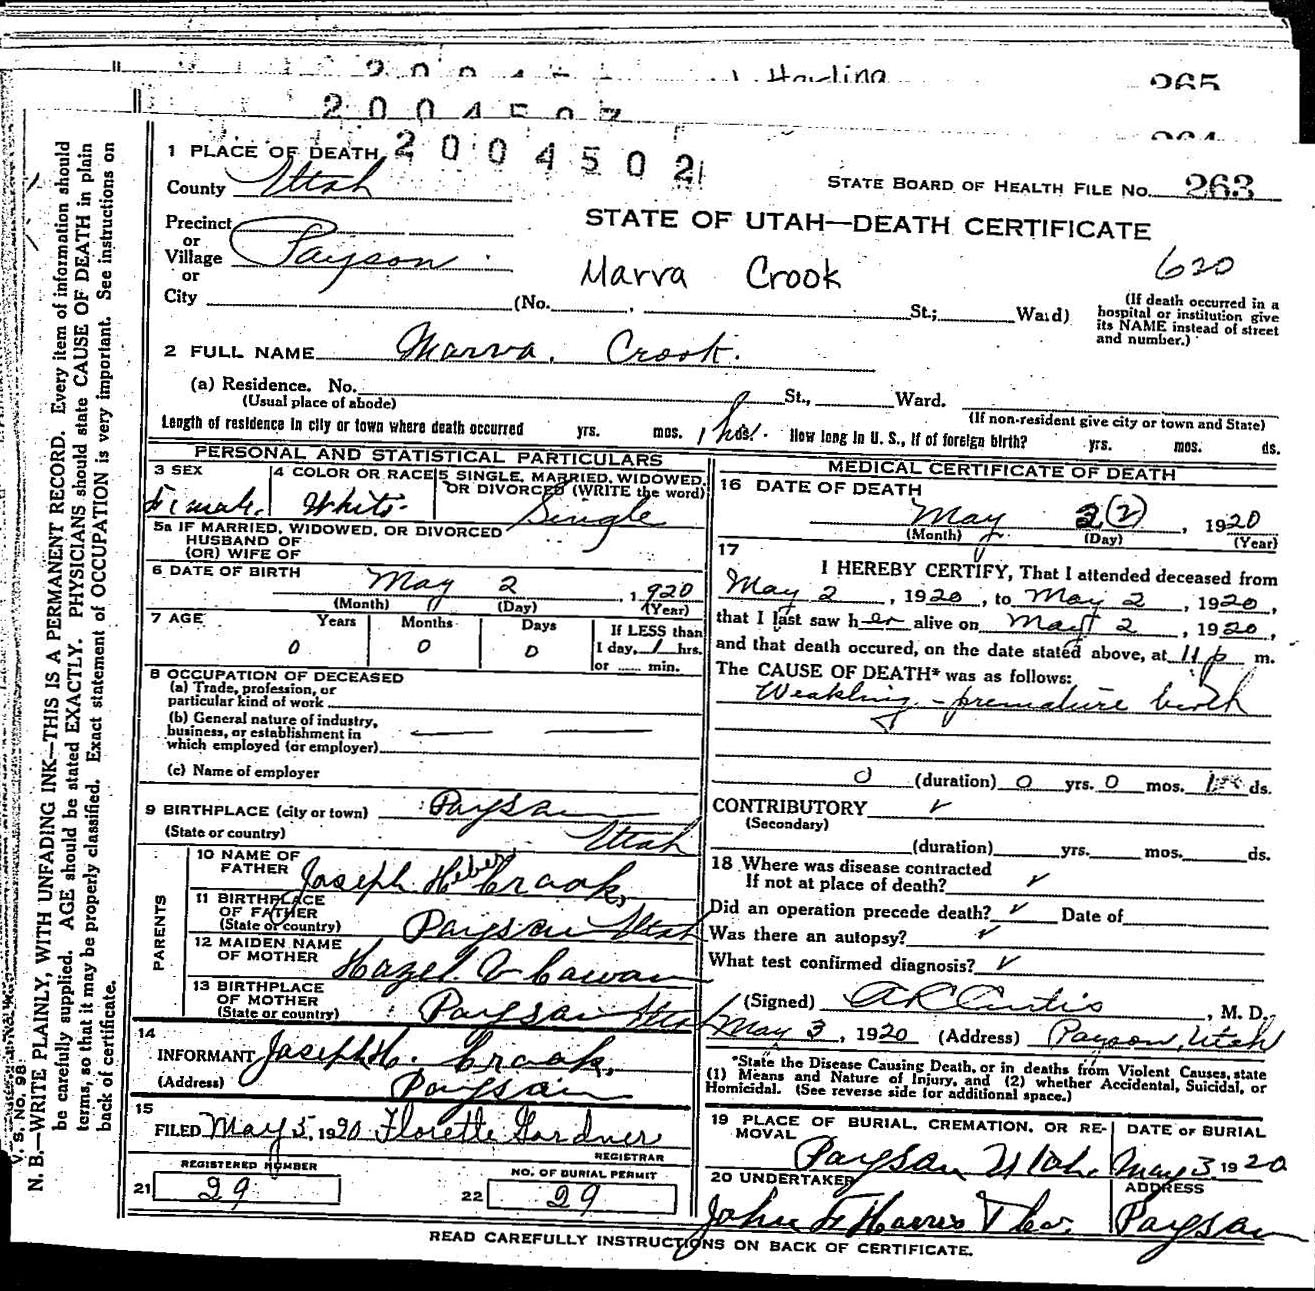 265
2004502
1 PLACE OF DEATH
County Utah
STATE BOARD OF HEALTH FILE No. 263
Precinct
or
Village Payson
or
City (No. , St.; Ward)
STATE OF UTAH—DEATH CERTIFICATE
Marva Crook
620
(If death occurred in a hospital or institution give its NAME instead of street and number.)
2 FULL NAME Marva Crook.
(a) Residence. No. St., Ward.
(Usual place of abode) (If non-resident give city or town and State)
Length of residence in city or town where death occurred yrs. mos. 1 hos. How long in U. S., if of foreign birth? yrs. mos. ds.
PERSONAL AND STATISTICAL PARTICULARS
3 SEX Female.
4 COLOR OR RACE White.
5 SINGLE, MARRIED, WIDOWED, OR DIVORCED (WRITE the word) Single
5a IF MARRIED, WIDOWED, OR DIVORCED
HUSBAND OF
(OR) WIFE OF
6 DATE OF BIRTH May 2, 1920
(Month) (Day) (Year)
7 AGE Years Months Days If LESS than
0 0 0 1 day, 1 hrs.
or min.
8 OCCUPATION OF DECEASED
(a) Trade, profession, or
particular kind of work
(b) General nature of industry,
business, or establishment in
which employed (or employer)
(c) Name of employer
9 BIRTHPLACE (city or town) Payson
(State or country) Utah
PARENTS
10 NAME OF FATHER Joseph Heber Crook
11 BIRTHPLACE OF FATHER (State or country) Payson Utah
12 MAIDEN NAME OF MOTHER Hazel V Cowan
13 BIRTHPLACE OF MOTHER (State or country) Payson Utah
14
INFORMANT Joseph H. Crook.
(Address) Payson
15
FILED May 5, 1920 Florette Gardner
REGISTRAR
21 REGISTERED NUMBER 29
22 NO. OF BURIAL PERMIT 29
MEDICAL CERTIFICATE OF DEATH
16 DATE OF DEATH
May 2 (2), 1920
(Month) (Day) (Year)
17
I HEREBY CERTIFY, That I attended deceased from
May 2, 1920, to May 2, 1920,
that I last saw her alive on May 2, 1920,
and that death occured, on the date stated above, at 11 p m.
The CAUSE OF DEATH* was as follows:
Weakling - premature birth
0 (duration) 0 yrs. 0 mos. ds.
CONTRIBUTORY ✓
(Secondary)
(duration) yrs. mos. ds.
18 Where was disease contracted
If not at place of death? ✓
Did an operation precede death? ✓ Date of
Was there an autopsy? ✓
What test confirmed diagnosis? ✓
(Signed) Curtis, M. D.
May 3, 1920 (Address) Payson, Utah
*State the Disease Causing Death, or in deaths from Violent Causes, state
(1) Means and Nature of Injury, and (2) whether Accidental, Suicidal, or
Homicidal. (See reverse side for additional space.)
19 PLACE OF BURIAL, CREMATION, OR REMOVAL Payson Utah.
DATE OF BURIAL May 3, 1920
20 UNDERTAKER John F Harris
ADDRESS Payson
READ CAREFULLY INSTRUCTIONS ON BACK OF CERTIFICATE.
V. S. No. 98
N. B.—WRITE PLAINLY, WITH UNFADING INK—THIS IS A PERMANENT RECORD. Every item of information should
be carefully supplied. AGE should be stated EXACTLY. PHYSICIANS should state CAUSE OF DEATH in plain
terms, so that it may be properly classified. Exact statement of OCCUPATION is very important. See instructions on
back of certificate.